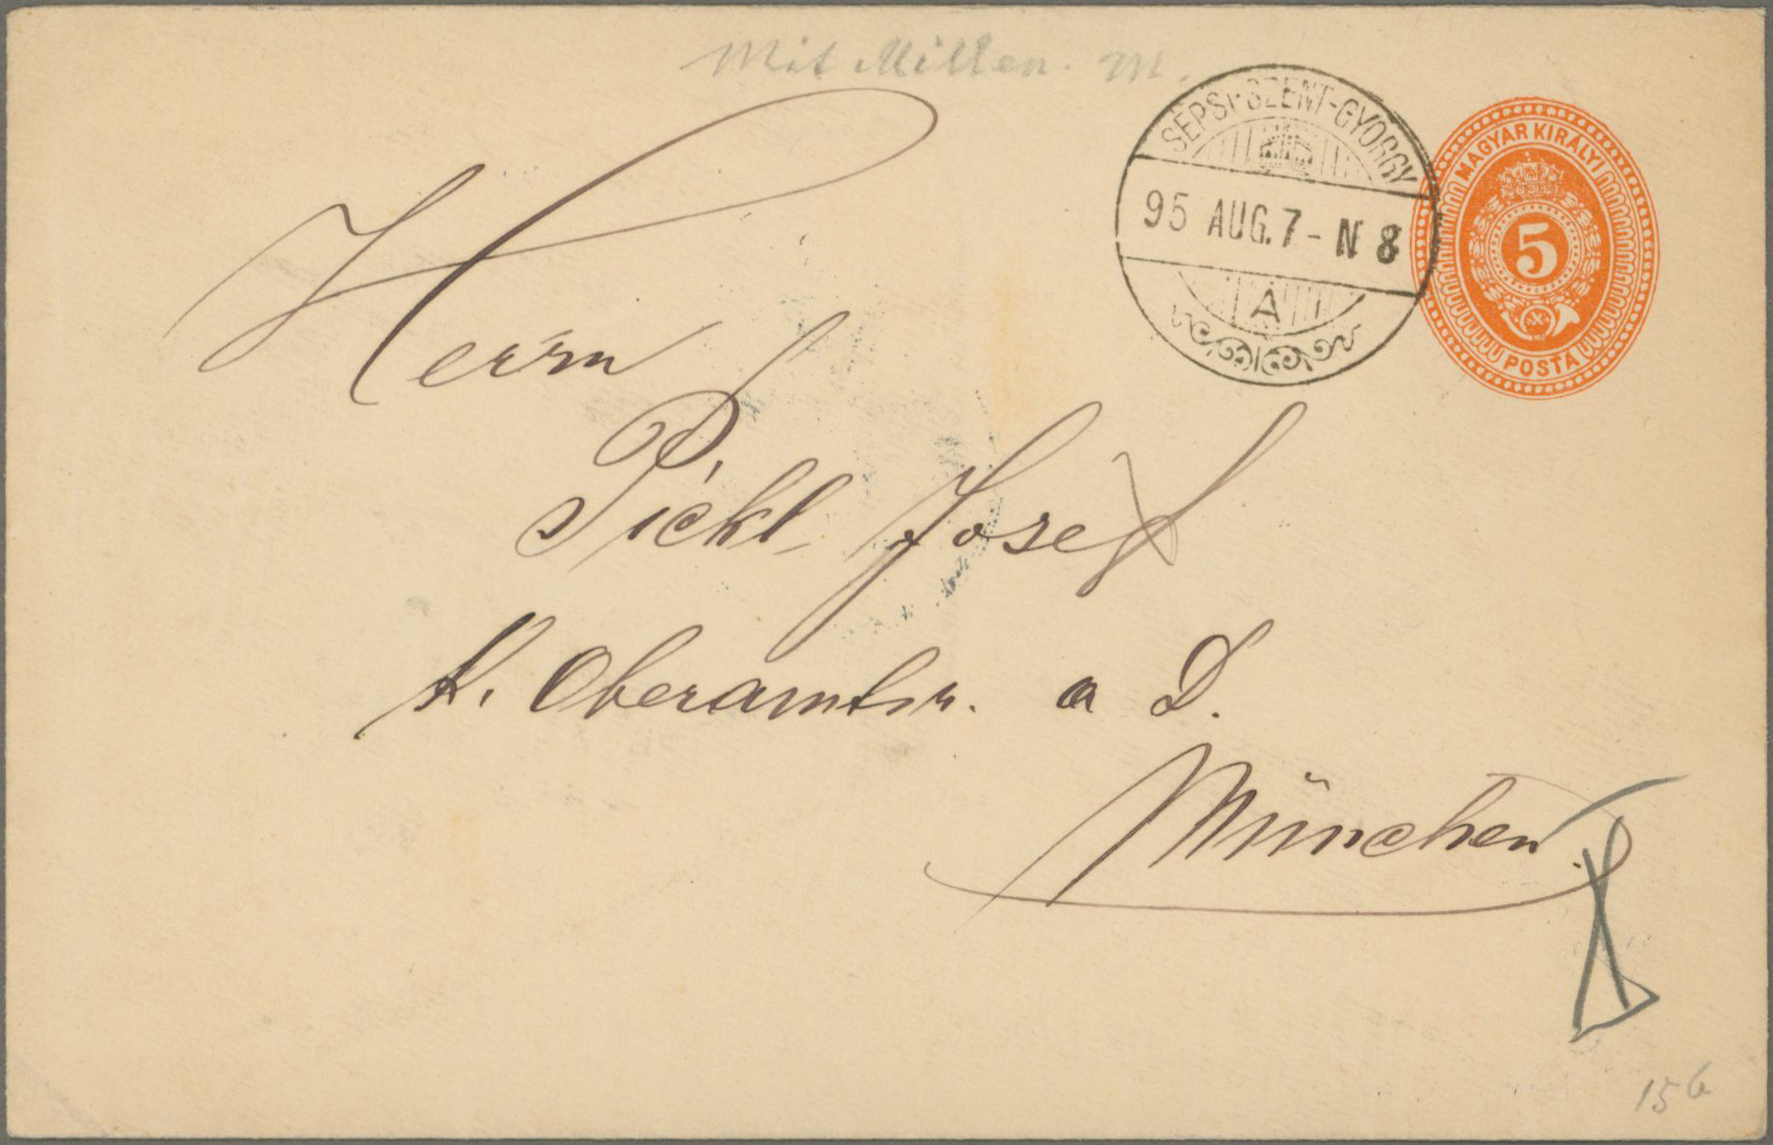 Mit Millen. M.
SEPSI-SZENT-GYÖRGY
95 AUG. 7 - N 8
A
MAGYAR KIRÁLYI
5
POSTA
Herrn
Pickl Josef
K. Oberamtsr. a D.
München.
15 b